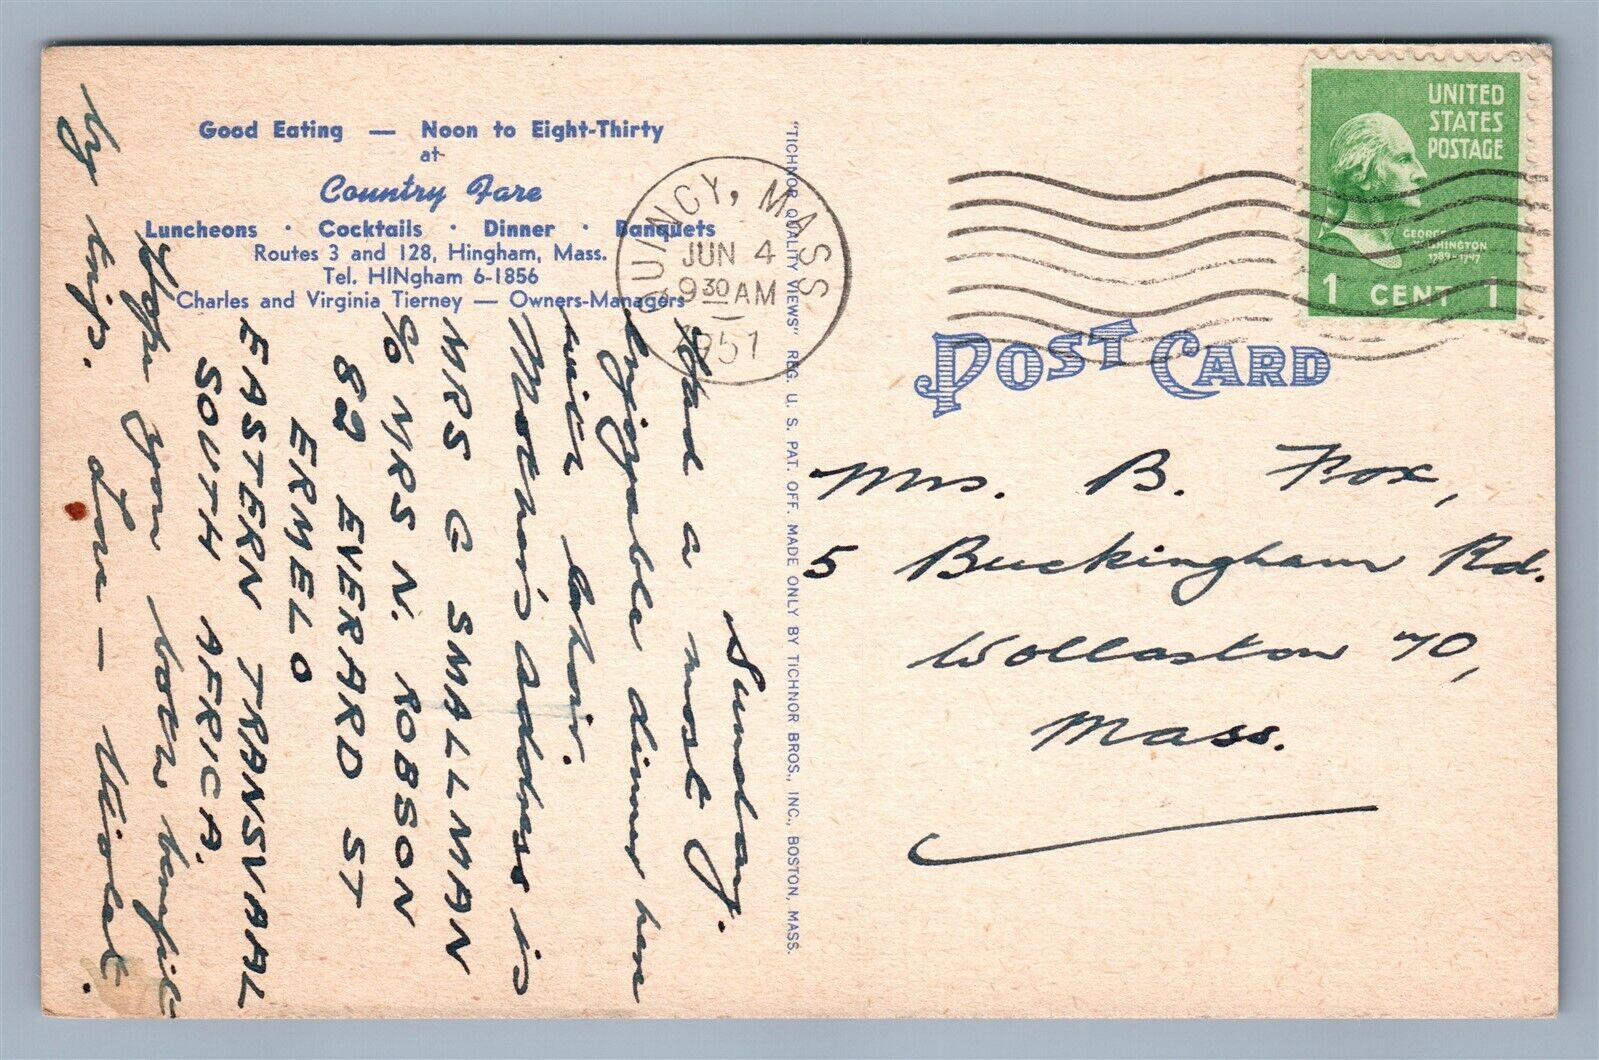 Good Eating — Noon to Eight-Thirty
at
Country Fare
Luncheons · Cocktails · Dinner · Banquets
Routes 3 and 128, Hingham, Mass.
Tel. HINgham 6-1856
Charles and Virginia Tierney — Owners-Managers
Sunday.
Had a most
enjoyable dinner here
with choir.
Mother's address is
MRS G SMALLMAN
c/o MRS N. ROBSON
82 EVERARD ST
ERMELO
EASTERN TRANSVAAL
SOUTH AFRICA.
Hope you both benefit
by trip. Love — Violet.
"TICHNOR QUALITY VIEWS" REG. U. S. PAT. OFF. MADE ONLY BY TICHNOR BROS., INC., BOSTON, MASS.
QUINCY, MASS
JUN 4
9 30 AM
1951
UNITED
STATES
POSTAGE
GEORGE
WASHINGTON
1789-1797
1 CENT 1
POST CARD
Mrs. B. Fox,
5 Buckingham Rd.
Wollaston 70,
Mass.